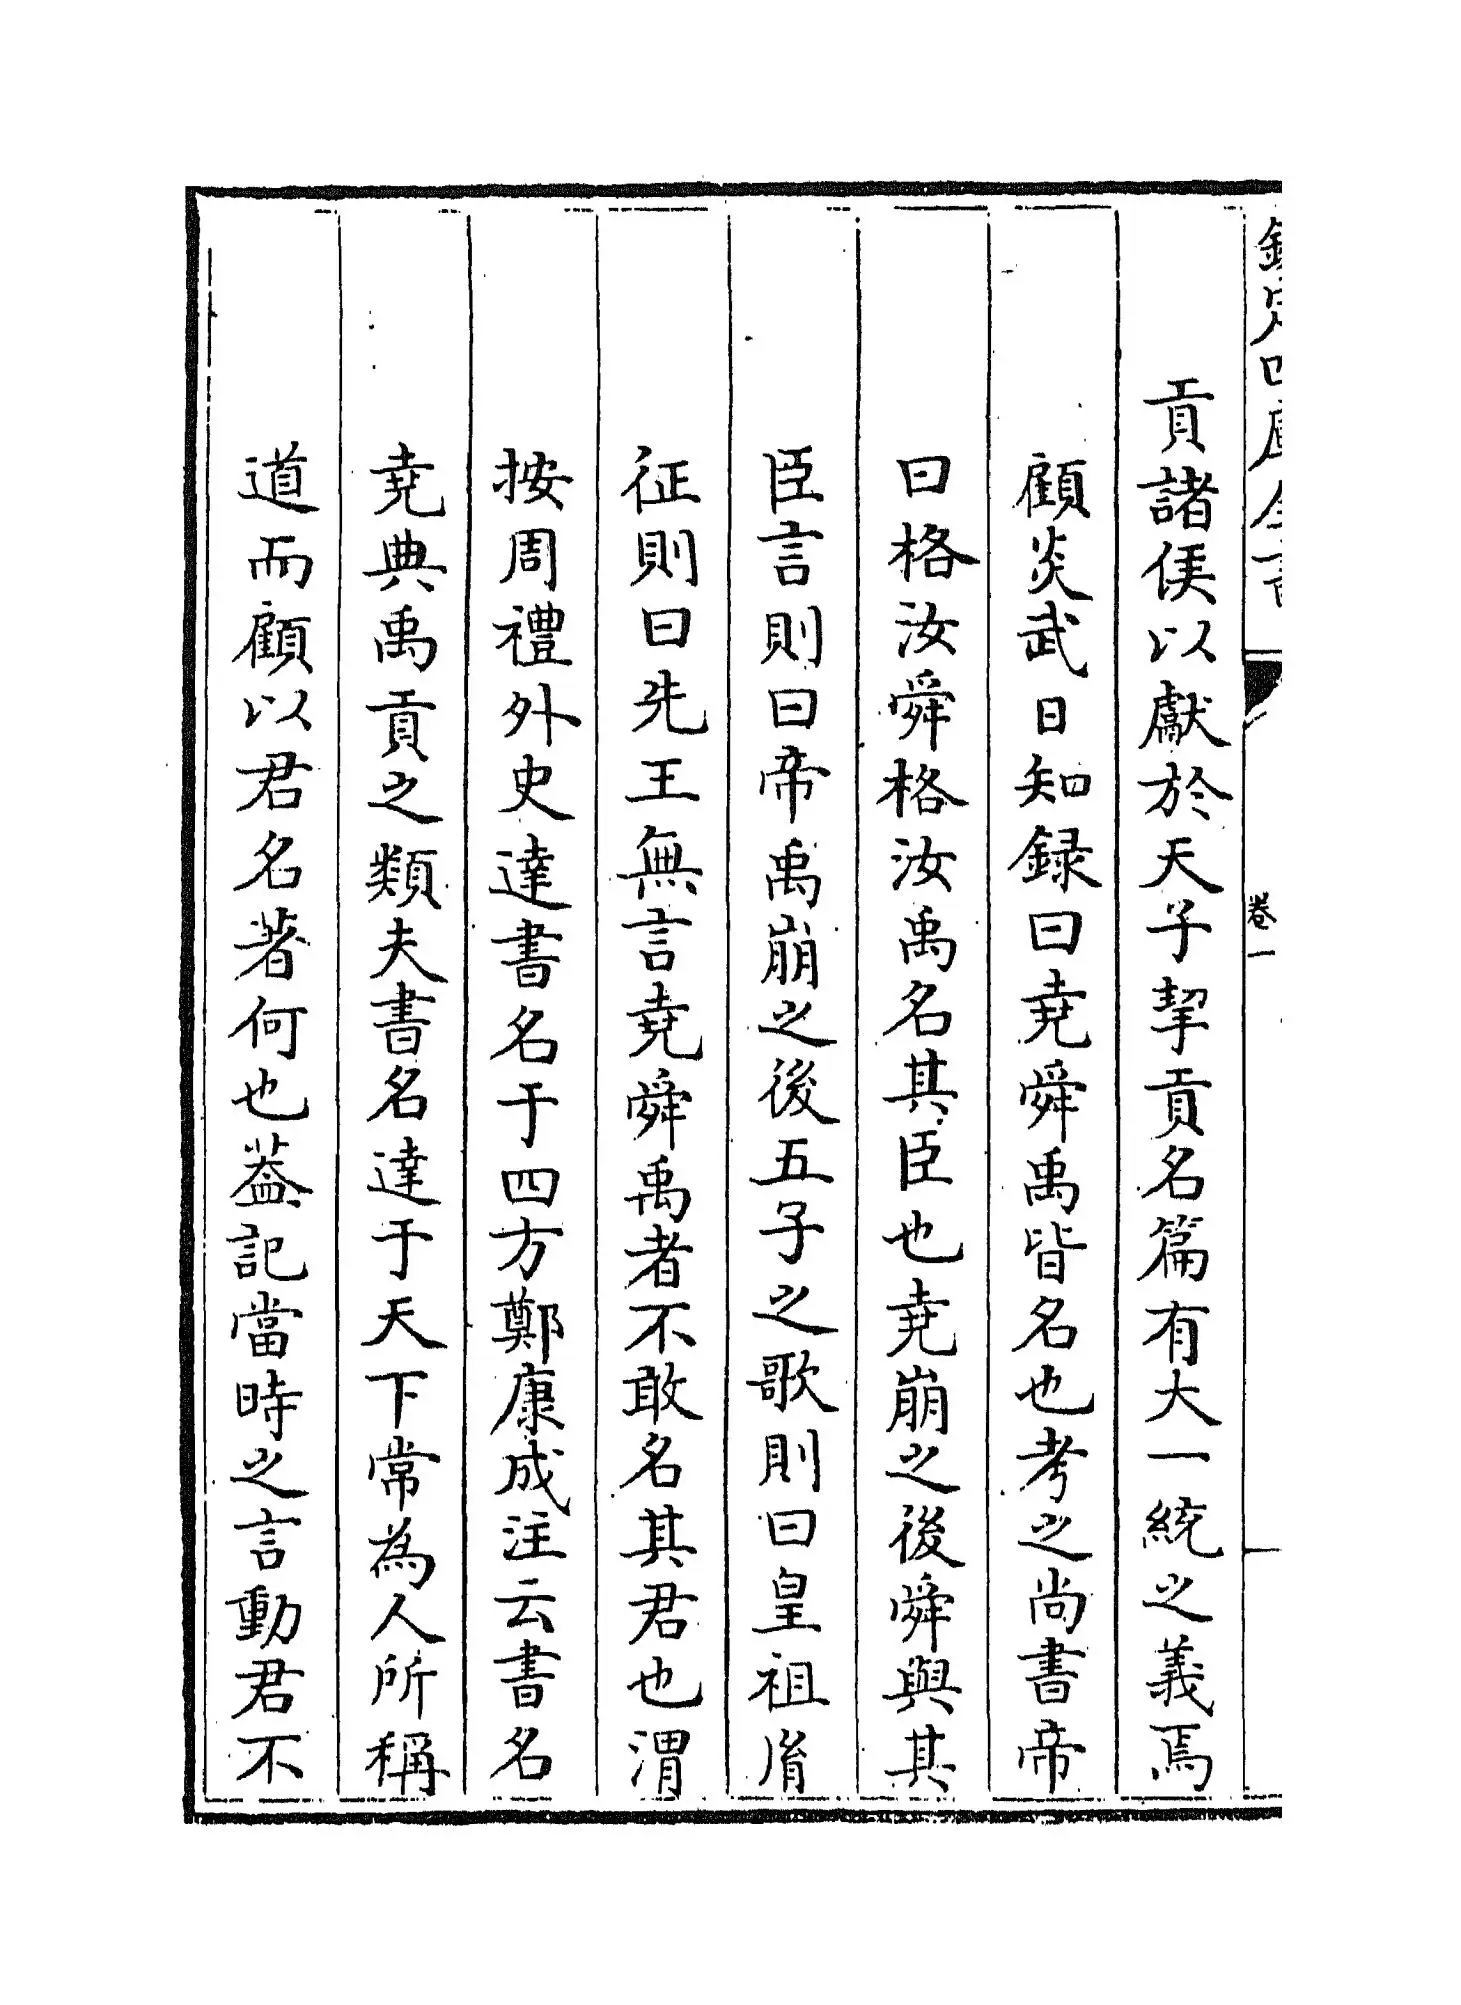 欽定四庫全書
卷一
貢諸侯以獻於天子挈貢名篇有大一統之義焉
顧炎武日知録曰堯舜禹皆名也考之尚書帝
曰格汝舜格汝禹名其臣也堯崩之後舜與其
臣言則曰帝禹崩之後五子之歌則曰皇祖胤
征則曰先王無言堯舜禹者不敢名其君也渭
按周禮外史達書名于四方鄭康成注云書名
堯典禹貢之類夫書名達于天下常為人所稱
道而顧以君名著何也葢記當時之言動君不